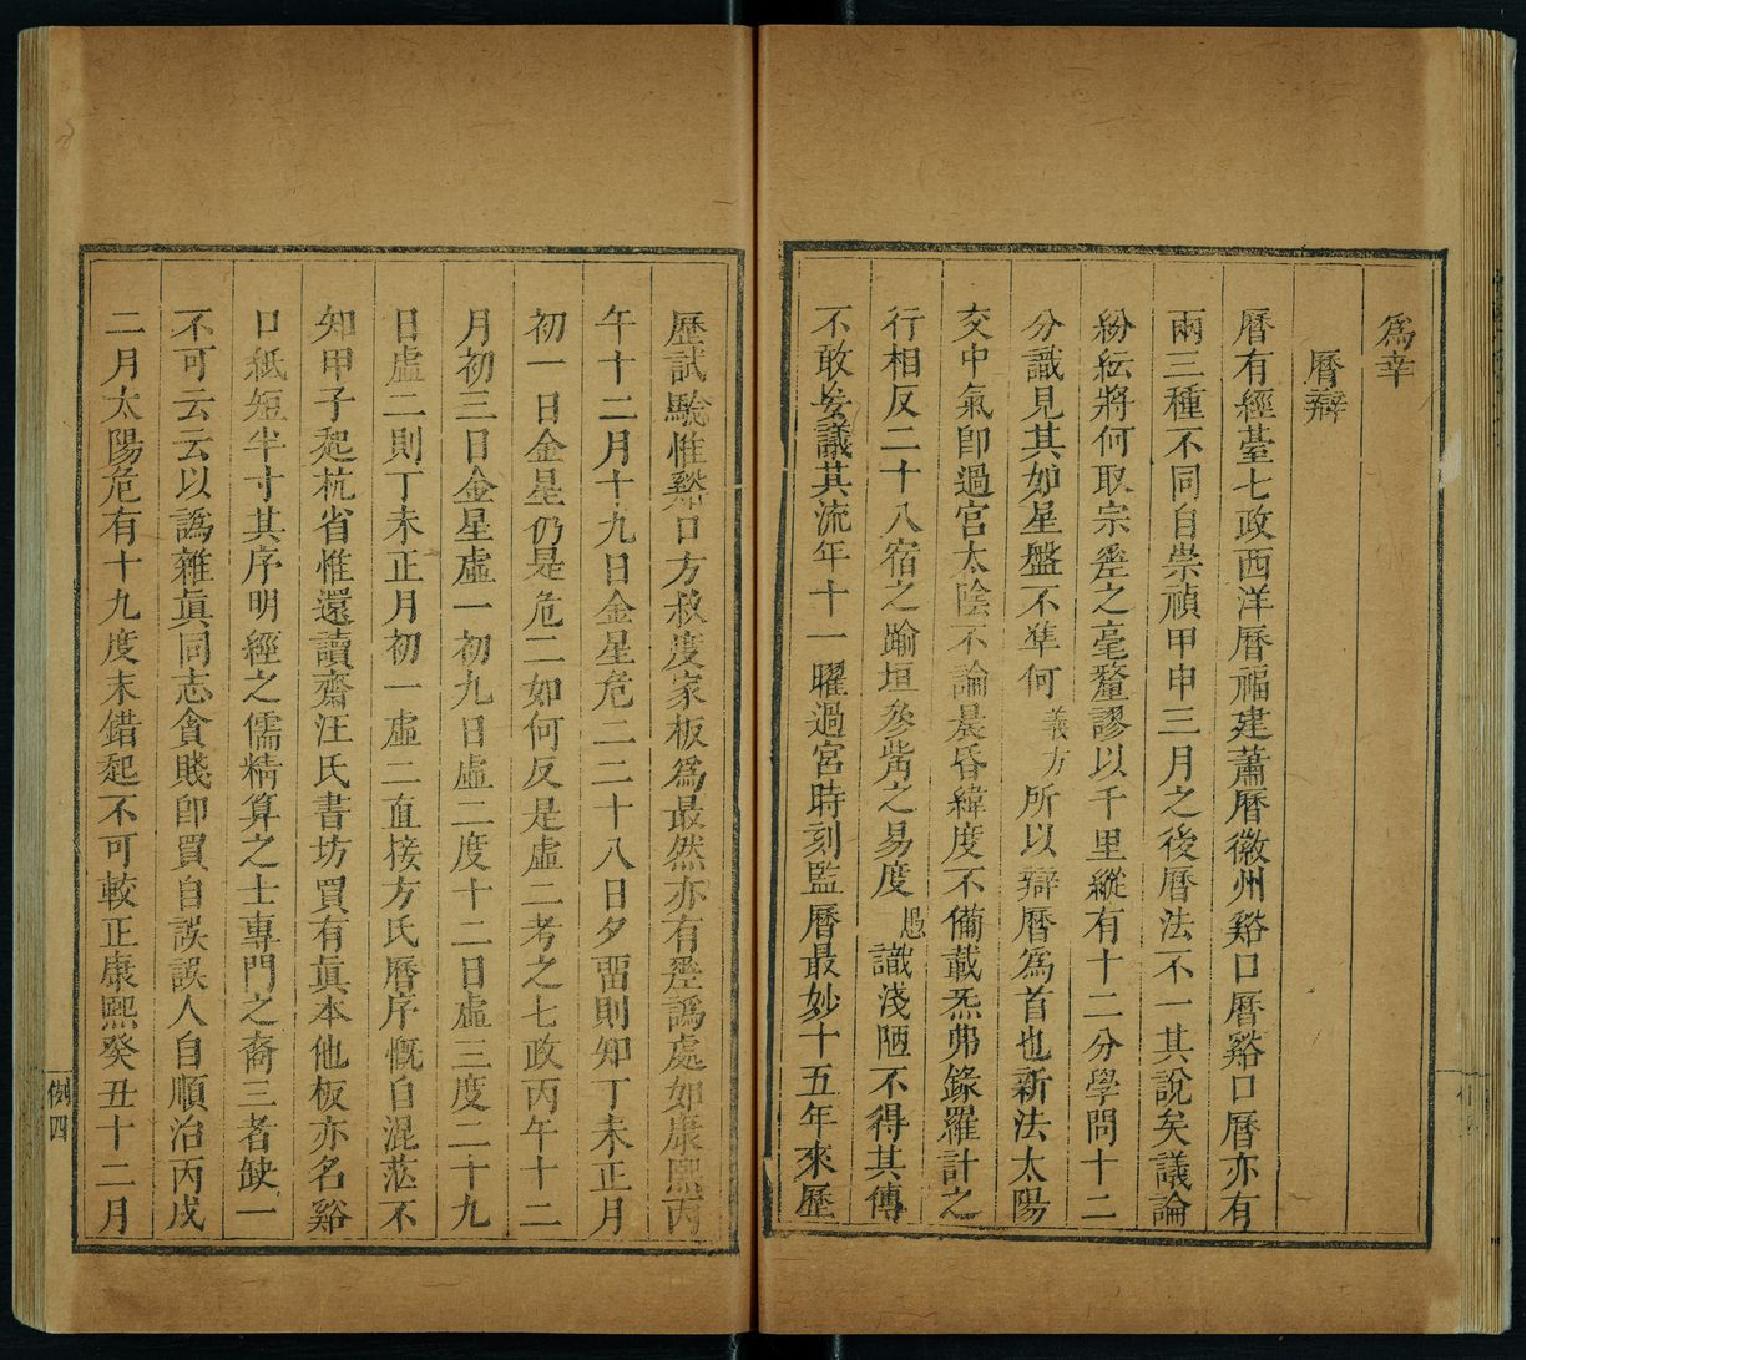 爲幸
曆辯
曆有經臺七政西洋曆福建蕭曆徽州谿口曆谿口曆亦有
兩三種不同自崇禎甲申三月之後曆法不一其說矣議論
紛紜將何取宗差之毫釐謬以千里縱有十二分學問十二
分識見其如星盤不準何義方所以辯曆爲首也新法太陽
交中氣卽過宮太陰不論晨昏緯度不備載炁弗錄羅計之
行相反二十八宿之踰垣參觜之易度愚識淺陋不得其傳
不敢妄議其流年十一曜過宮時刻監曆最妙十五年來歷
歷試驗惟谿口方叔度家板爲最然亦有差譌處如康熙丙
午十二月十九日金星危二二十八日夕畱則知丁未正月
初一日金星仍是危二如何反是虛二考之七政丙午十二
月初三日金星虛一初九日虛二度十二日虛三度二十九
日虛二則丁未正月初一虛二直接方氏曆序慨自混茫不
知甲子起杭省惟還讀齋汪氏書坊買有眞本他板亦名谿
口紙短半寸其序明經之儒精算之士專門之裔三者缺一
不可云云以譌雜眞同志貪賤卽買自誤誤人自順治丙戌
二月太陽危有十九度末錯起不可較正康熙癸丑十二月
例四